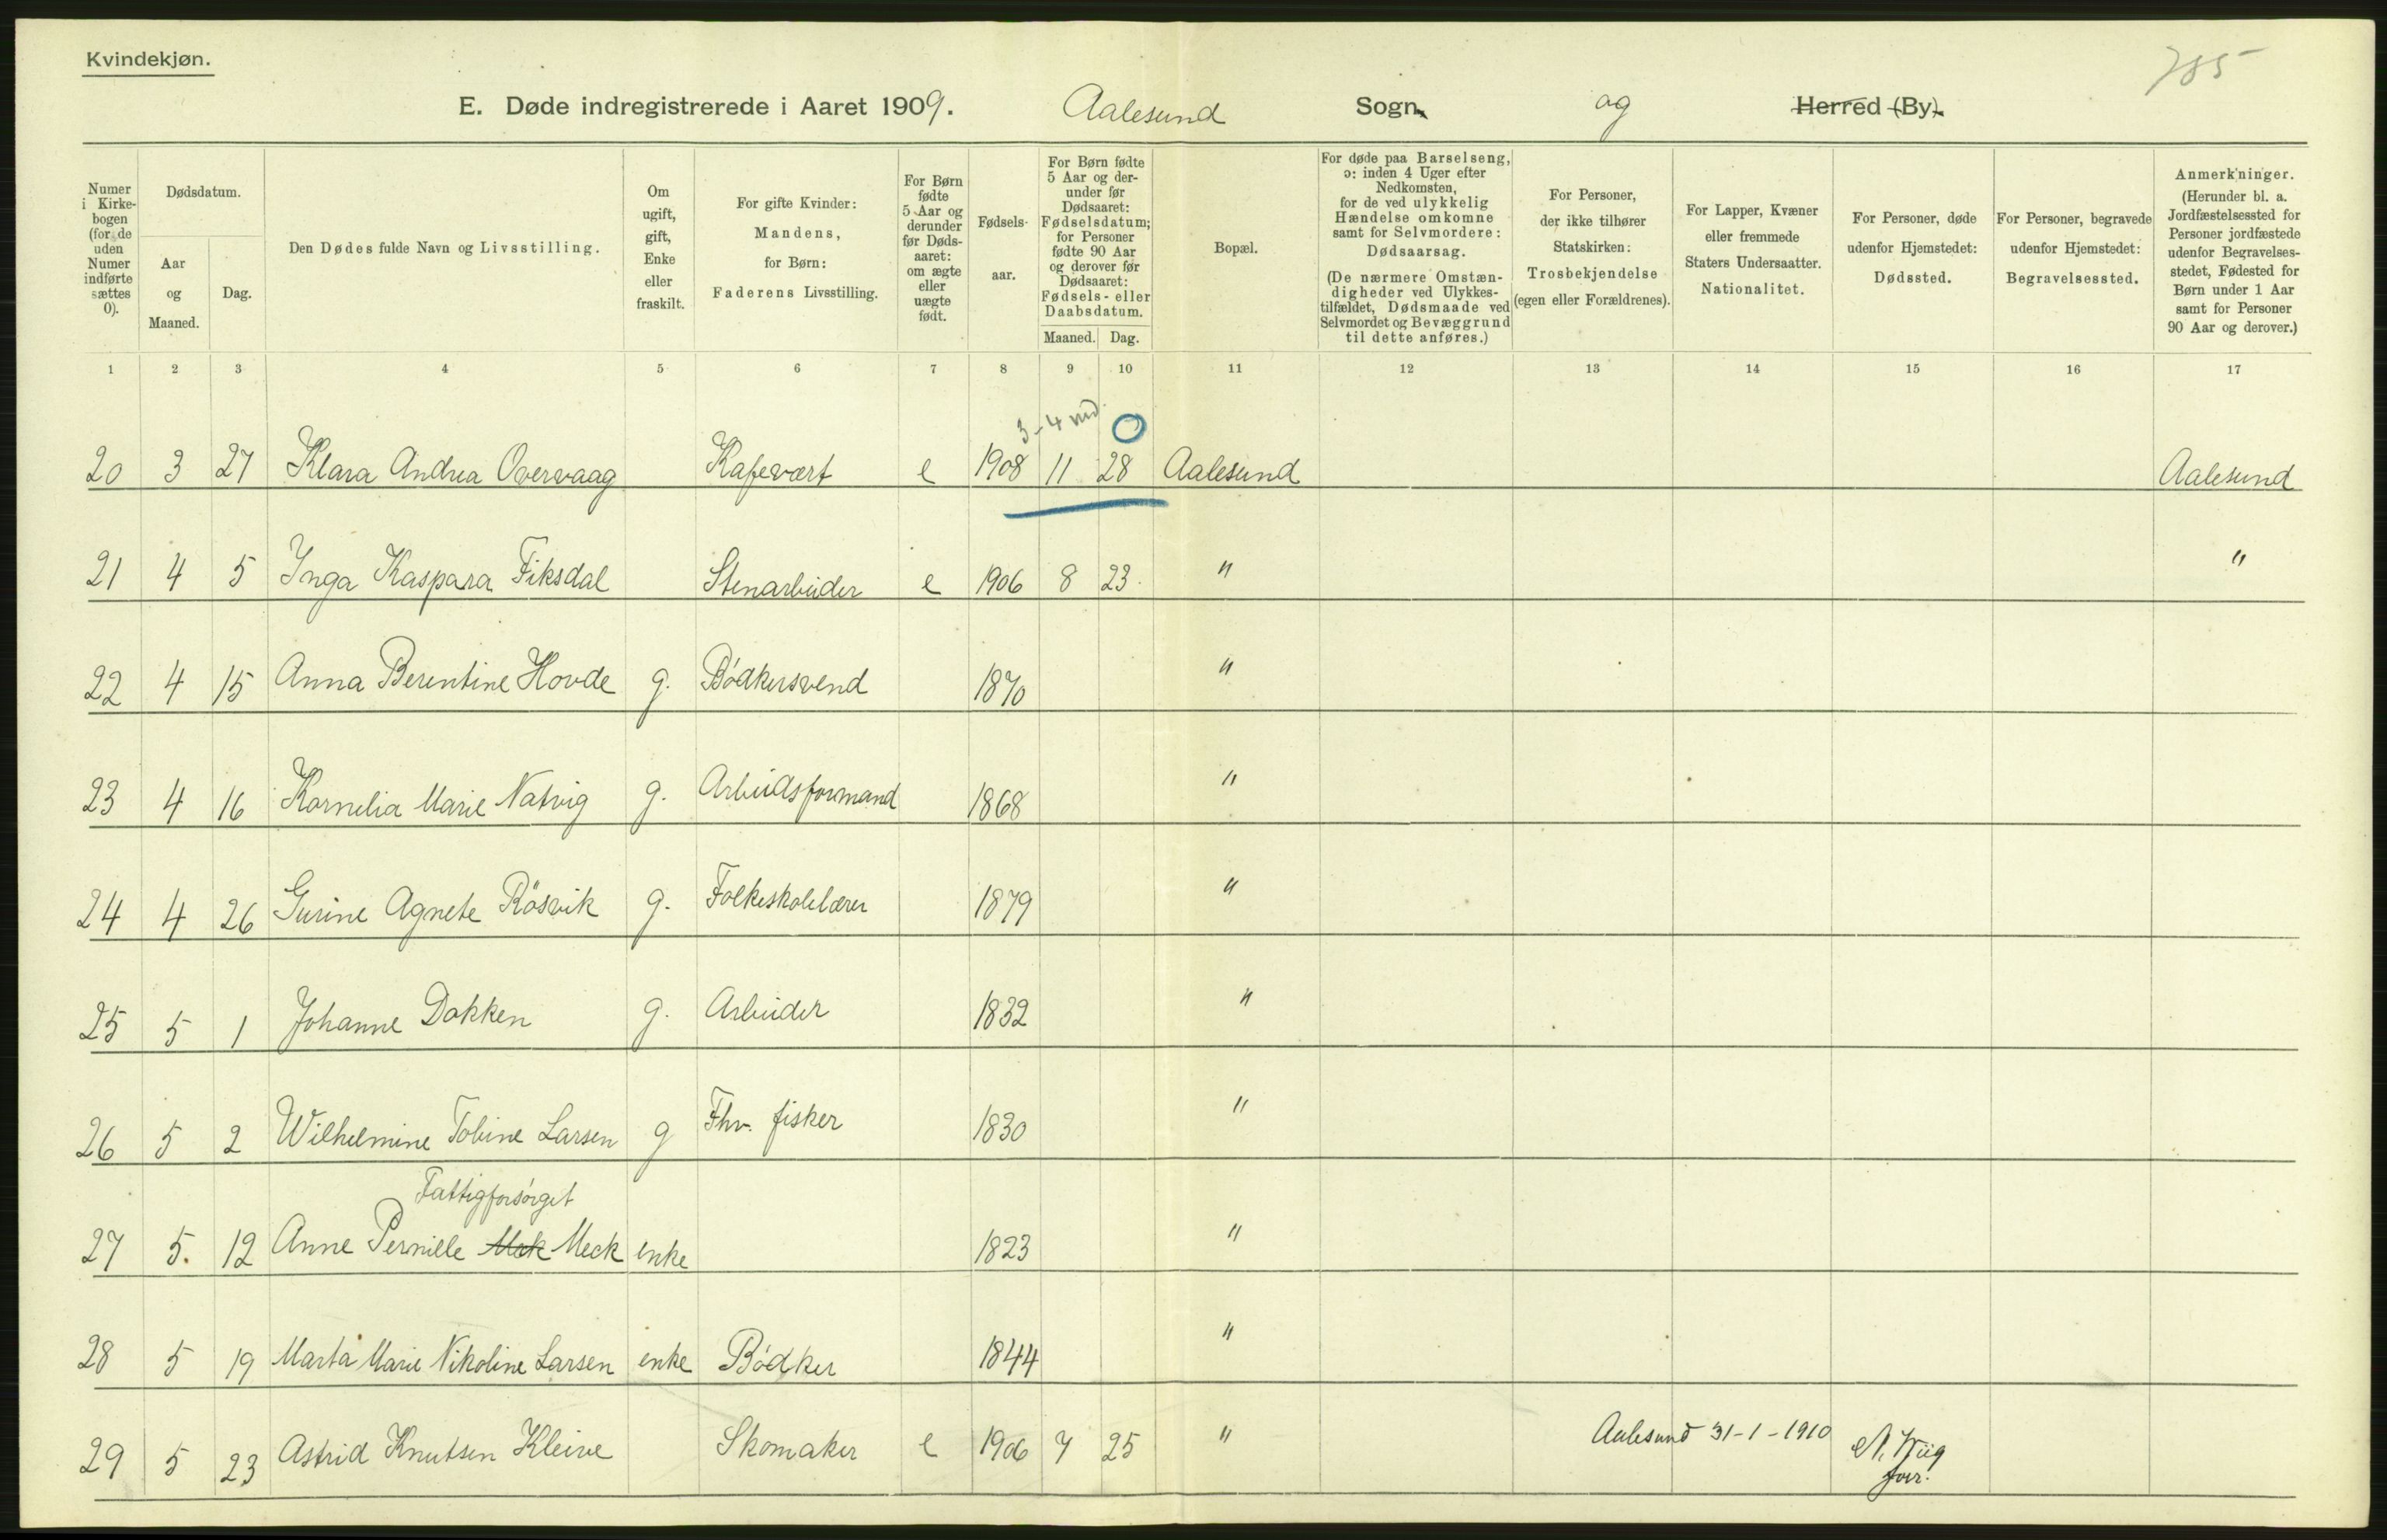 Kvindekjøn.
785
E. Døde indregistrerede i Aaret 1909. Aalesund Sogn og Herred (By).
Numer i Kirkebogen (for de uden Numer indførte sættes 0).
Dødsdatum.
Aar og Maaned.
Dag.
Den Dødes fulde Navn og Livsstilling.
Om ugift, gift, Enke eller fraskilt.
For gifte Kvinder: Mandens, for Børn: Faderens Livsstilling.
For Børn fødte 5 Aar og derunder før Dødsaaret: om ægte eller uægte født.
Fødselsaar.
For Børn fødte 5 Aar og derunder før Dødsaaret: Fødselsdatum; for Personer fødte 90 Aar og derover før Dødsaaret: Fødsels- eller Daabsdatum.
Maaned. Dag.
Bopæl.
For døde paa Barselseng, ɔ: inden 4 Uger efter Nedkomsten, for de ved ulykkelig Hændelse omkomne samt for Selvmordere: Dødsaarsag. (De nærmere Omstændigheder ved Ulykkestilfældet, Dødsmaade ved Selvmordet og Bevæggrund til dette anføres.)
For Personer, der ikke tilhører Statskirken: Trosbekjendelse (egen eller Forældrenes).
For Lapper, Kvæner eller fremmede Staters Undersaatter. Nationalitet.
For Personer, døde udenfor Hjemstedet: Dødssted.
For Personer, begravede udenfor Hjemstedet: Begravelsessted.
Anmerkninger. (Herunder bl. a. Jordfæstelsessted for Personer jordfæstede udenfor Begravelsesstedet, Fødested for Børn under 1 Aar samt for Personer 90 Aar og derover.)
1 2 3 4 5 6 7 8 9 10 11 12 13 14 15 16 17
3-4 md. 0
20 3 27 Klara Andrea Overvaag Kafevært e 1908 11 28 Aalesund Aalesund
21 4 5 Inga Kaspara Fiksdal Stenarbeider e 1906 8 23. " "
22 4 15 Anna Berentine Hovde g. Bødkersvend 1870 "
23 4 16 Kornelia Marie Natvig g. Arbeidsformand 1868 "
24 4 26 Gurine Agnete Røsvik g. Folkeskolelærer 1879 "
25 5 1 Johanne Dokken g. Arbeider 1832 "
26 5 2 Wilhelmine Tobine Larsen g Fhv. fisker 1830 "
Fattigforsørget
27 5. 12 Anne Pernille Mek Meck enke 1823 "
28 5 19 Marta Marie Nikoline Larsen enke Bødker 1844 "
29 5 23 Astrid Knutsen Kleive Skomaker e 1906 7 25 " Aalesund 31-1-1910